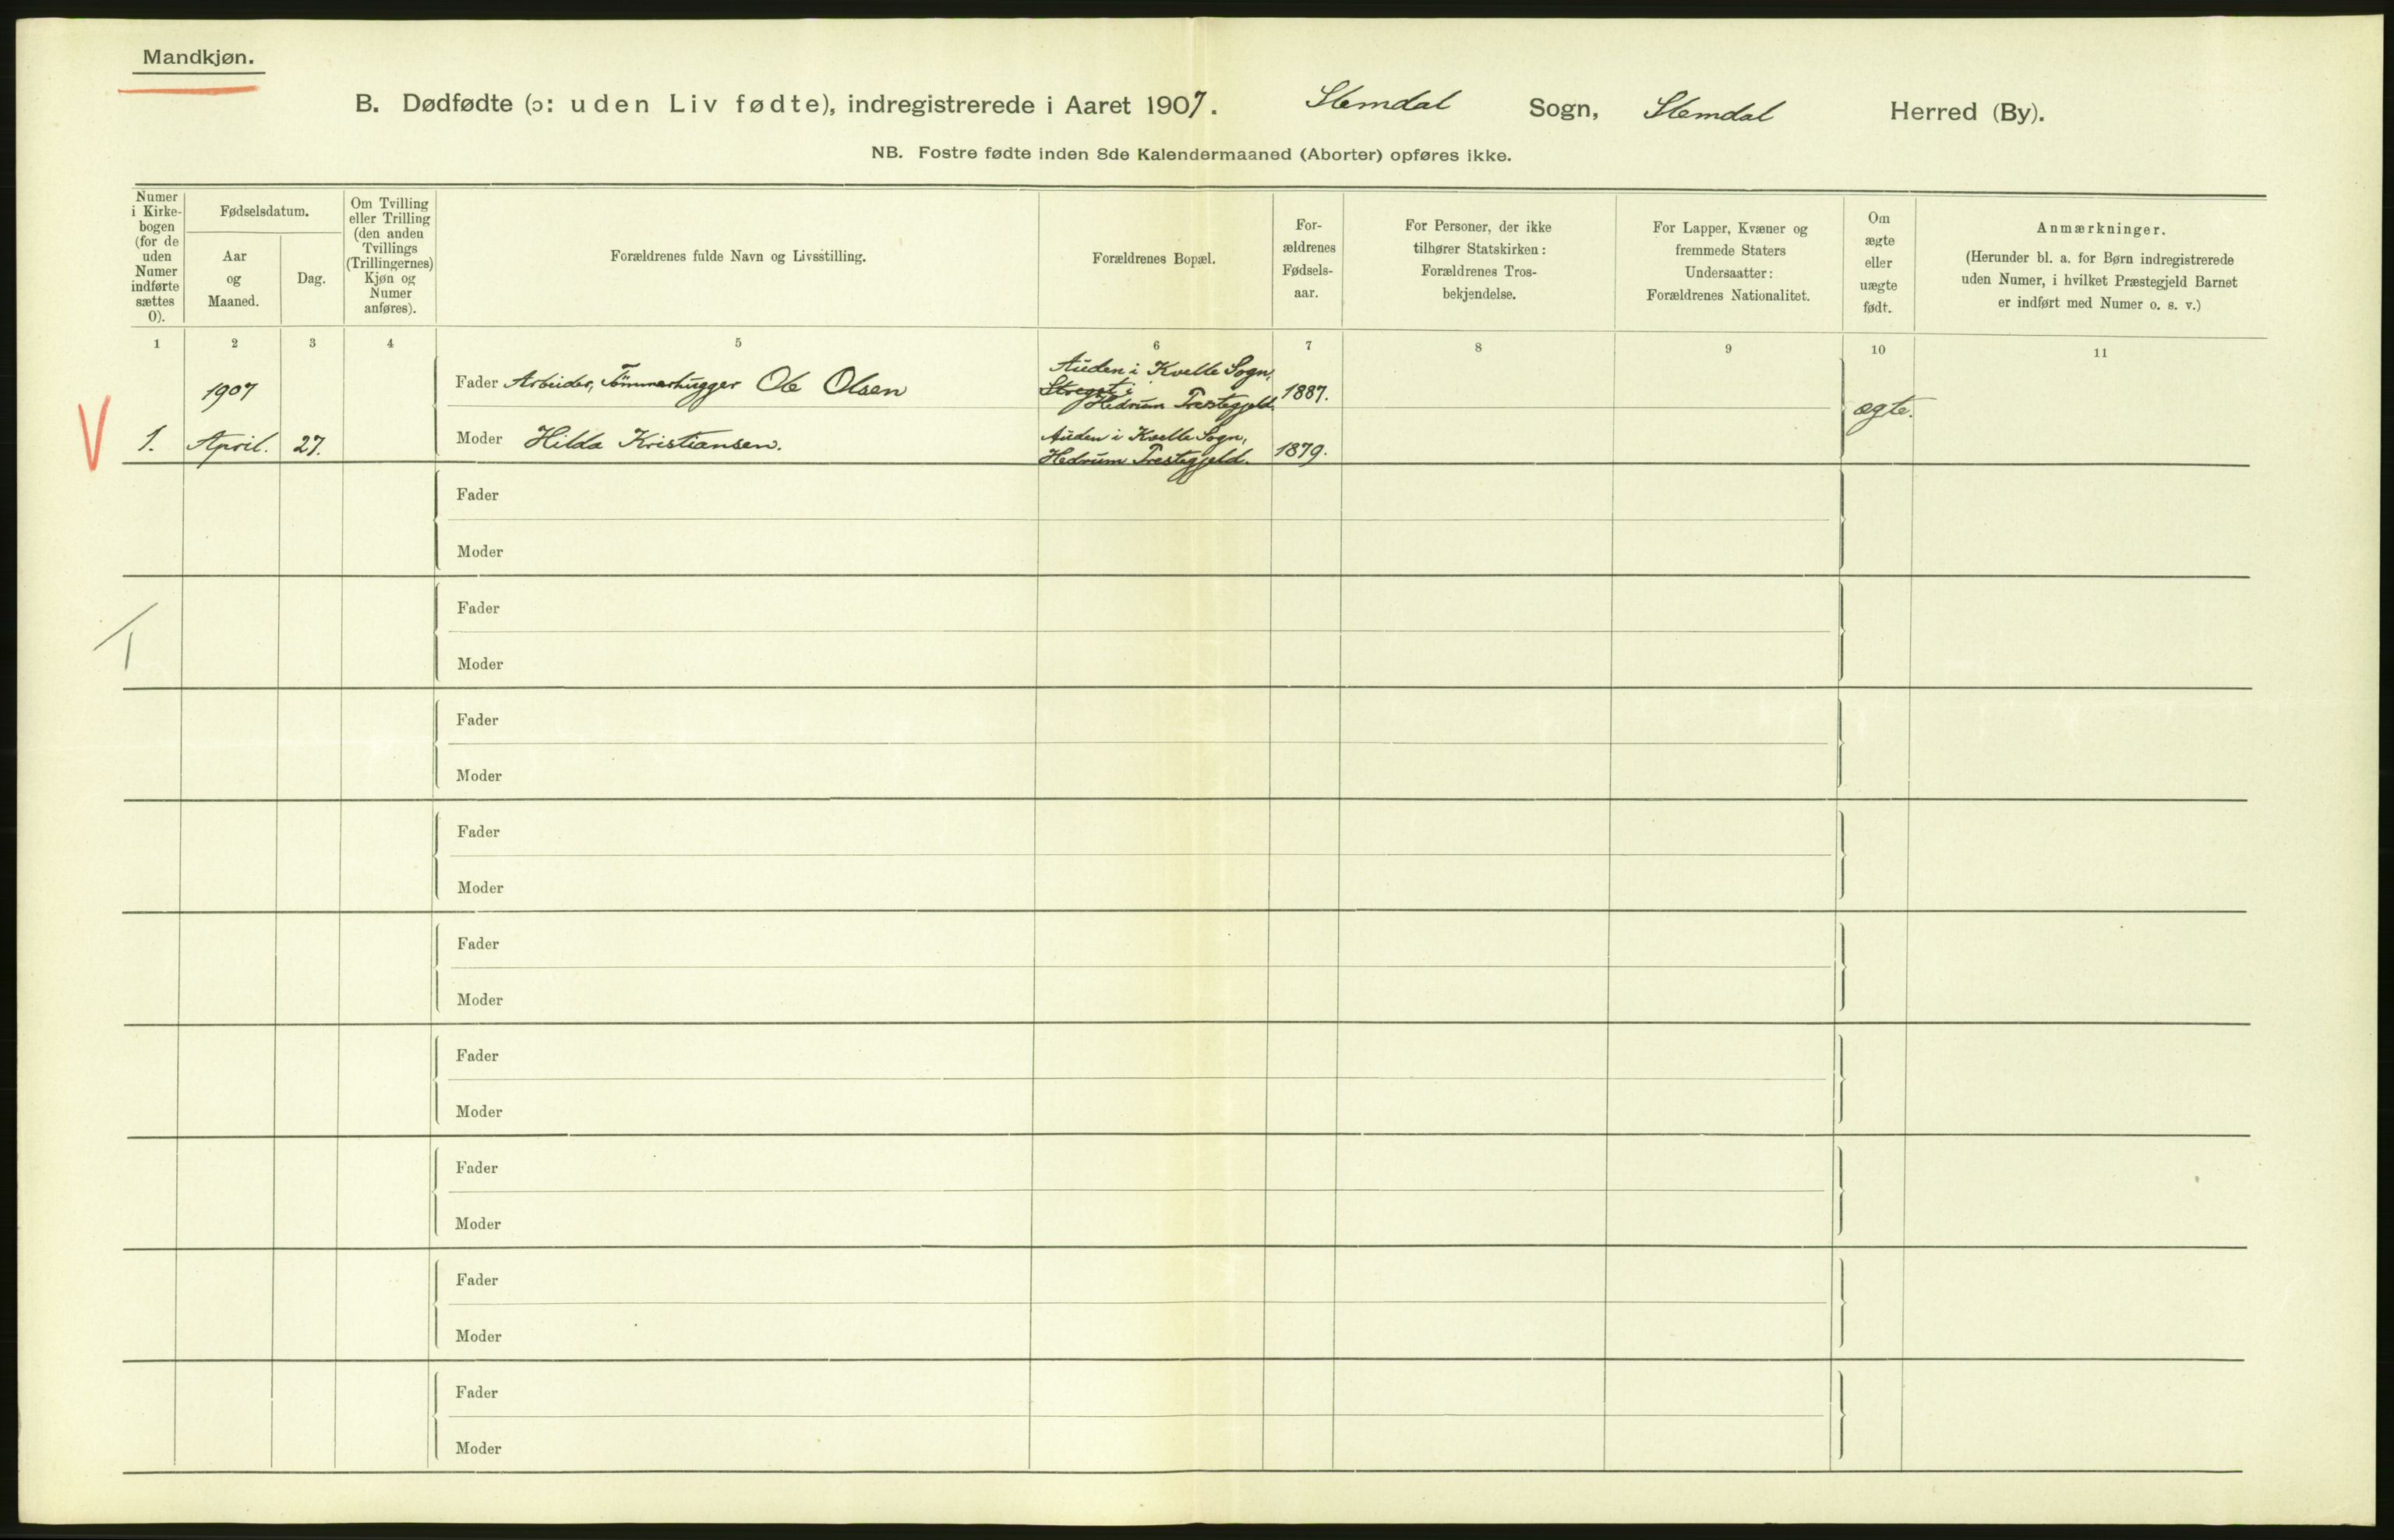 Mandkjøn.
B. Dødfødte (ɔ: uden Liv fødte), indregistrerede i Aaret 1907. Slemdal Sogn, Slemdal Herred (By).
NB. Fostre fødte inden 8de Kalendermaaned (Aborter) opføres ikke.
Numer
i Kirke-
bogen
(for de
uden
Numer
indførte
sættes
0).
Fødselsdatum.
Aar
og
Maaned.
Dag.
Om Tvilling
eller Trilling
(den anden
Tvillings
(Trillingernes)
Kjøn og
Numer
anføres).
Forældrenes fulde Navn og Livsstilling.
Forældrenes Bopæl.
For-
ældrenes
Fødsels-
aar.
For Personer, der ikke
tilhører Statskirken:
Forældrenes Tros-
bekjendelse.
For Lapper, Kvæner og
fremmede Staters
Undersaatter:
Forældrenes Nationalitet.
Om
ægte
eller
uægte
født.
Anmærkninger.
(Herunder bl. a. for Børn indregistrerede
uden Numer, i hvilket Præstegjeld Barnet
er indført med Numer o. s. v.)
1 2 3 4 5 6 7 8 9 10 11
1.
1907
April. 27.
Fader Arbeider, Tømmerhugger Ole Olsen
Auden i Kvelle Sogn,
Hedrum Prestegjeld.
1887.
Moder Hilda Kristiansen.
Auden i Kvelle Sogn,
Hedrum Prestegjeld.
1879.
ægte.
Fader
Moder
Fader
Moder
Fader
Moder
Fader
Moder
Fader
Moder
Fader
Moder
Fader
Moder
Fader
Moder
Fader
Moder